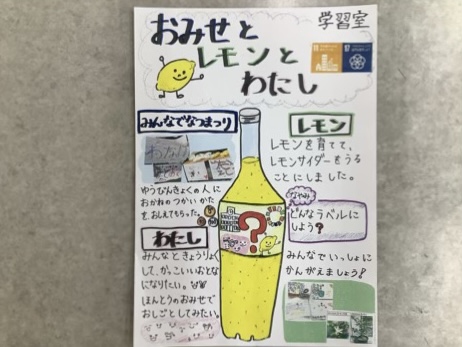 学習室
おみせと
レモンと
わたし
11
17
みんなでなつまつり
ゆうびんきょくの人に
おかねのつかいかた
を、おしえてもらった。
わたし
みんなときょうりょく
して、かっこいいおとな
になりたい。
ほんとうのおみせで
おしごとしてみたい。
?
レモン
レモンを育てて、
レモンサイダーをうる
ことにしました。
なやみ
どんなラベルに
しよう?
みんなでいっしょに
かんがえましょう!